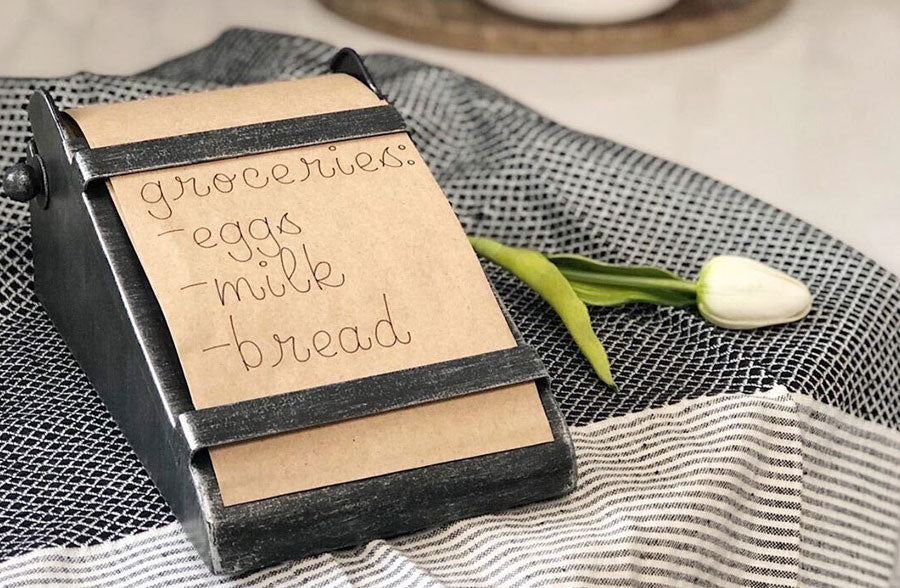 groceries:
-eggs
-milk
-bread